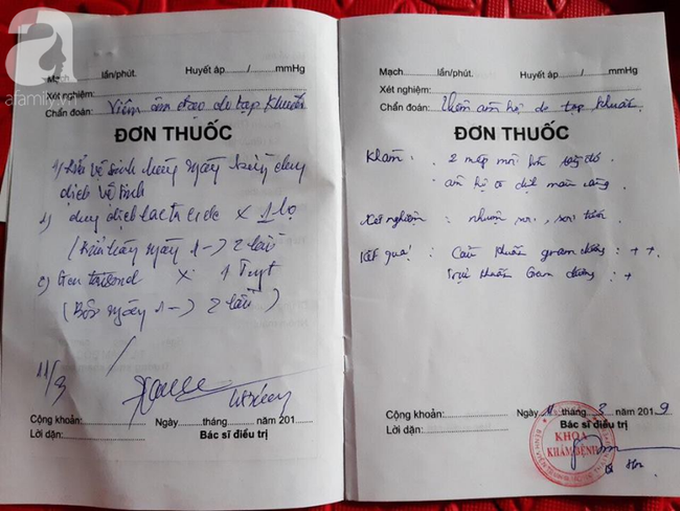 a
afamily.vn
Mạch............lần/phút. Huyết áp......../........mmHg
Xét nghiệm:
Chẩn đoán: Viêm âm đạo do tạp khuẩn
ĐƠN THUỐC
vệ sinh hàng ngày bằng dung
dịch vệ sinh
dung dịch lactacid x 1 lọ
ngày 1 -> 2 lần
x 1 Tuýp
(Bôi ngày 1 -> 2 lần)
11/3
Cộng khoản: Ngày........tháng........năm 201....
Lời dặn: Bác sĩ điều trị
Mạch............lần/phút. Huyết áp......../........mmHg
Xét nghiệm:
Chẩn đoán: Viêm âm hộ do tạp khuẩn
ĐƠN THUỐC
Khám : 2 mép môi lớn đỏ
âm hộ có dịch màu vàng
Xét nghiệm : nhuộm soi, soi tươi
Kết quả : Cầu khuẩn gram dương : + +
Trực khuẩn Gram dương : +
Cộng khoản: Ngày 11 tháng 3 năm 2019
Lời dặn: Bác sĩ điều trị
KHOA
KHÁM BỆNH